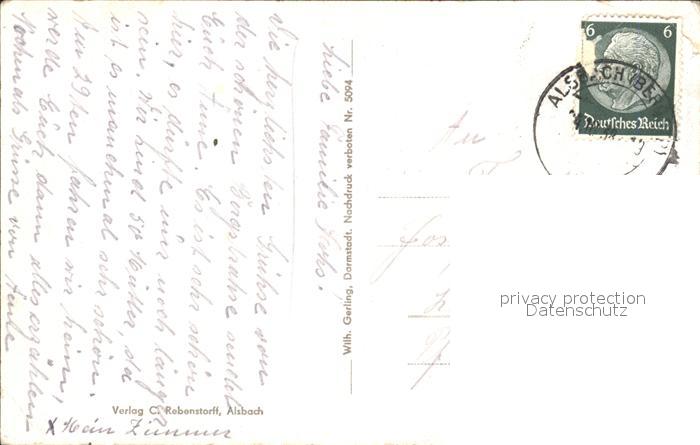 Liebe Familie
Die herzlichsten Grüsse von
der schönen Bergstrasse sendet
Euch Tante. Es ist sehr schön
hier, es dürfte nur noch länger
sein. Wir sind 50 Mütter, da
ist es manchmal sehr schön.
Am 29ten fahren wir heim,
werde Euch dann alles erzählen
Nochmals Grüsse von
x Mein Zimmer
Verlag C. Rebenstorff, Alsbach
Wilh. Gerling, Darmstadt. Nachdruck verboten Nr. 5094
An
6 6
Deutsches Reich
ALSBACH (BE
privacy protection
Datenschutz